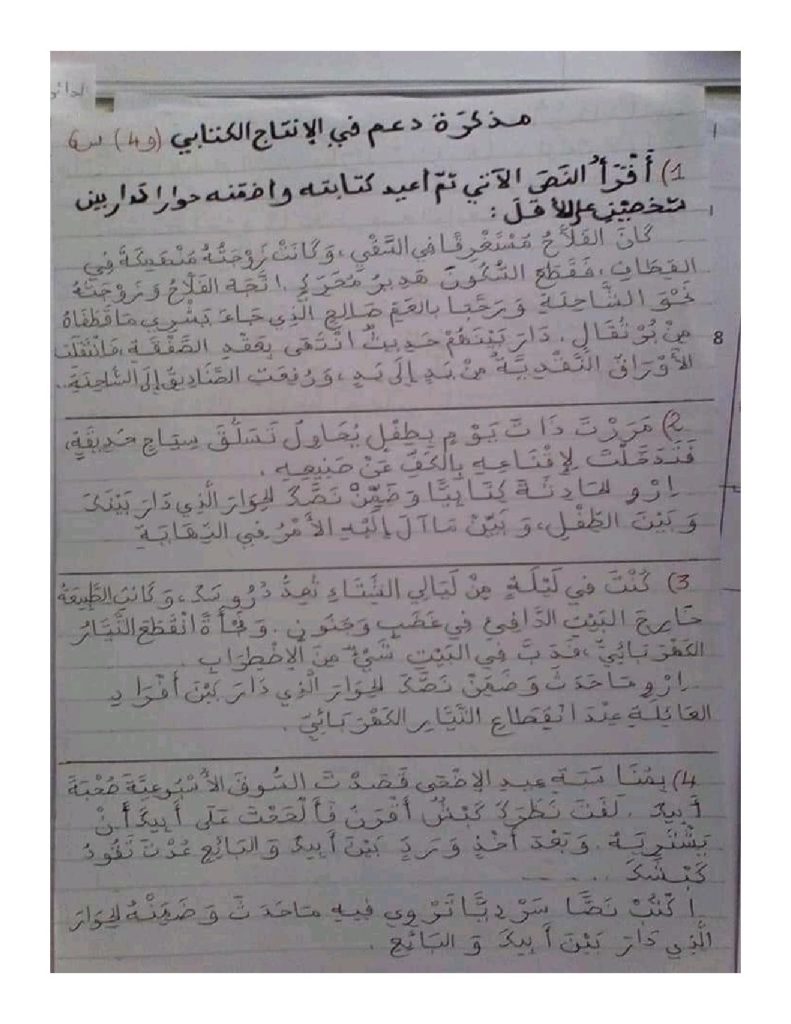 مذكرة دعم في الإنتاج الكتابي (و4) س6
1) أَقْرَأُ النَصَ الآتي ثمّ أعيد كتابته وأضمّنه حوارا دار بين
شخصيْن على الأقل :
كَانَ الفَلَّاحُ مُسْتَغْرِقًا في السَّقْيِ ، وَكَانَتْ زَوْجَتُهُ مُنْهَمِكَةً فِي
القِطَافِ ، فَقَطَعَ السُّكُونَ هَدِيرُ مُحَرِّكٍ . اتَّجَهَ الفَلَّاحُ وَزَوْجَتُهُ
نَحْوَ الشَّاحِنَةِ وَرَحَّبَا بِالعَمِّ صَالِحٍ الَّذِي جَاءَ يَشْتَرِي مَا قَطَفَاهُ
مِنْ بُرْتُقَالٍ . دَارَ بَيْنَهُمْ حَدِيثٌ انْتَهَى بِعَقْدِ الصَّفْقَةِ ، فَانْتَقَلَتْ
الأَوْرَاقُ النَّقْدِيَّةُ مِنْ يَدٍ إِلَى يَدٍ ، وَرُفِعَتِ الصَّنَادِيقُ إِلَى الشَّاحِنَةِ..
8
2) مَرَرْتَ ذَاتَ يَوْمٍ بِطِفْلٍ يُحَاوِلُ تَسَلُّقَ سِيَاجِ حَدِيقَةٍ،
فَتَدَخَّلْتَ لِإِقْنَاعِهِ بِالكَفِّ عَنْ صَنِيعِهِ .
اِرْوِ الحَادِثَةَ كِتَابِيًّا وَضَمِّنْ نَصَّكَ الحِوَارَ الَّذِي دَارَ بَيْنَكَ
وَبَيْنَ الطِّفْلِ، وَبَيِّنْ مَا آلَ إِلَيْهِ الأَمْرُ فِي النِّهَايَةِ
3) كُنْتَ فِي لَيْلَةٍ مِنْ لَيَالِي الشِّتَاءِ تُعِدُّ دُرُوسَكَ ، وَكَانَتِ الطَّبِيعَةُ
خَارِجَ البَيْتِ الدَّافِئِ فِي غَضَبٍ وَجُنُونٍ . وَفَجْأَةً انْقَطَعَ التَّيَّارُ
الكَهْرَبَائِيُّ ، فَدَبَّ فِي البَيْتِ شَيْءٌ مِنَ الاِضْطِرَابِ .
اِرْوِ مَا حَدَثَ وَضَمِّنْ نَصَّكَ الحِوَارَ الَّذِي دَارَ بَيْنَ أَفْرَادِ
العَائِلَةِ عِنْدَ انْقِطَاعِ التَّيَّارِ الكَهْرَبَائِيِّ .
4) بِمُنَاسَبَةِ عِيدِ الإِضْحَى قَصَدْتَ السُّوقَ الأُسْبُوعِيَّةَ صُحْبَةَ
أَبِيكَ . لَفَتَ نَظَرَكَ كَبْشٌ أَقْرَنُ فَأَلْحَحْتَ عَلَى أَبِيكَ أَنْ
يَشْتَرِيَهُ . وَبَعْدَ أَخْذٍ وَرَدٍّ بَيْنَ أَبِيكَ وَالبَائِعِ عُدْتَ تَقُودُ
كَبْشَكَ ......
اُكْتُبْ نَصًّا سَرْدِيًّا تَرْوِي فِيهِ مَا حَدَثَ وَضَمِّنْهُ الحِوَارَ
الَّذِي دَارَ بَيْنَ أَبِيكَ وَالبَائِعِ .